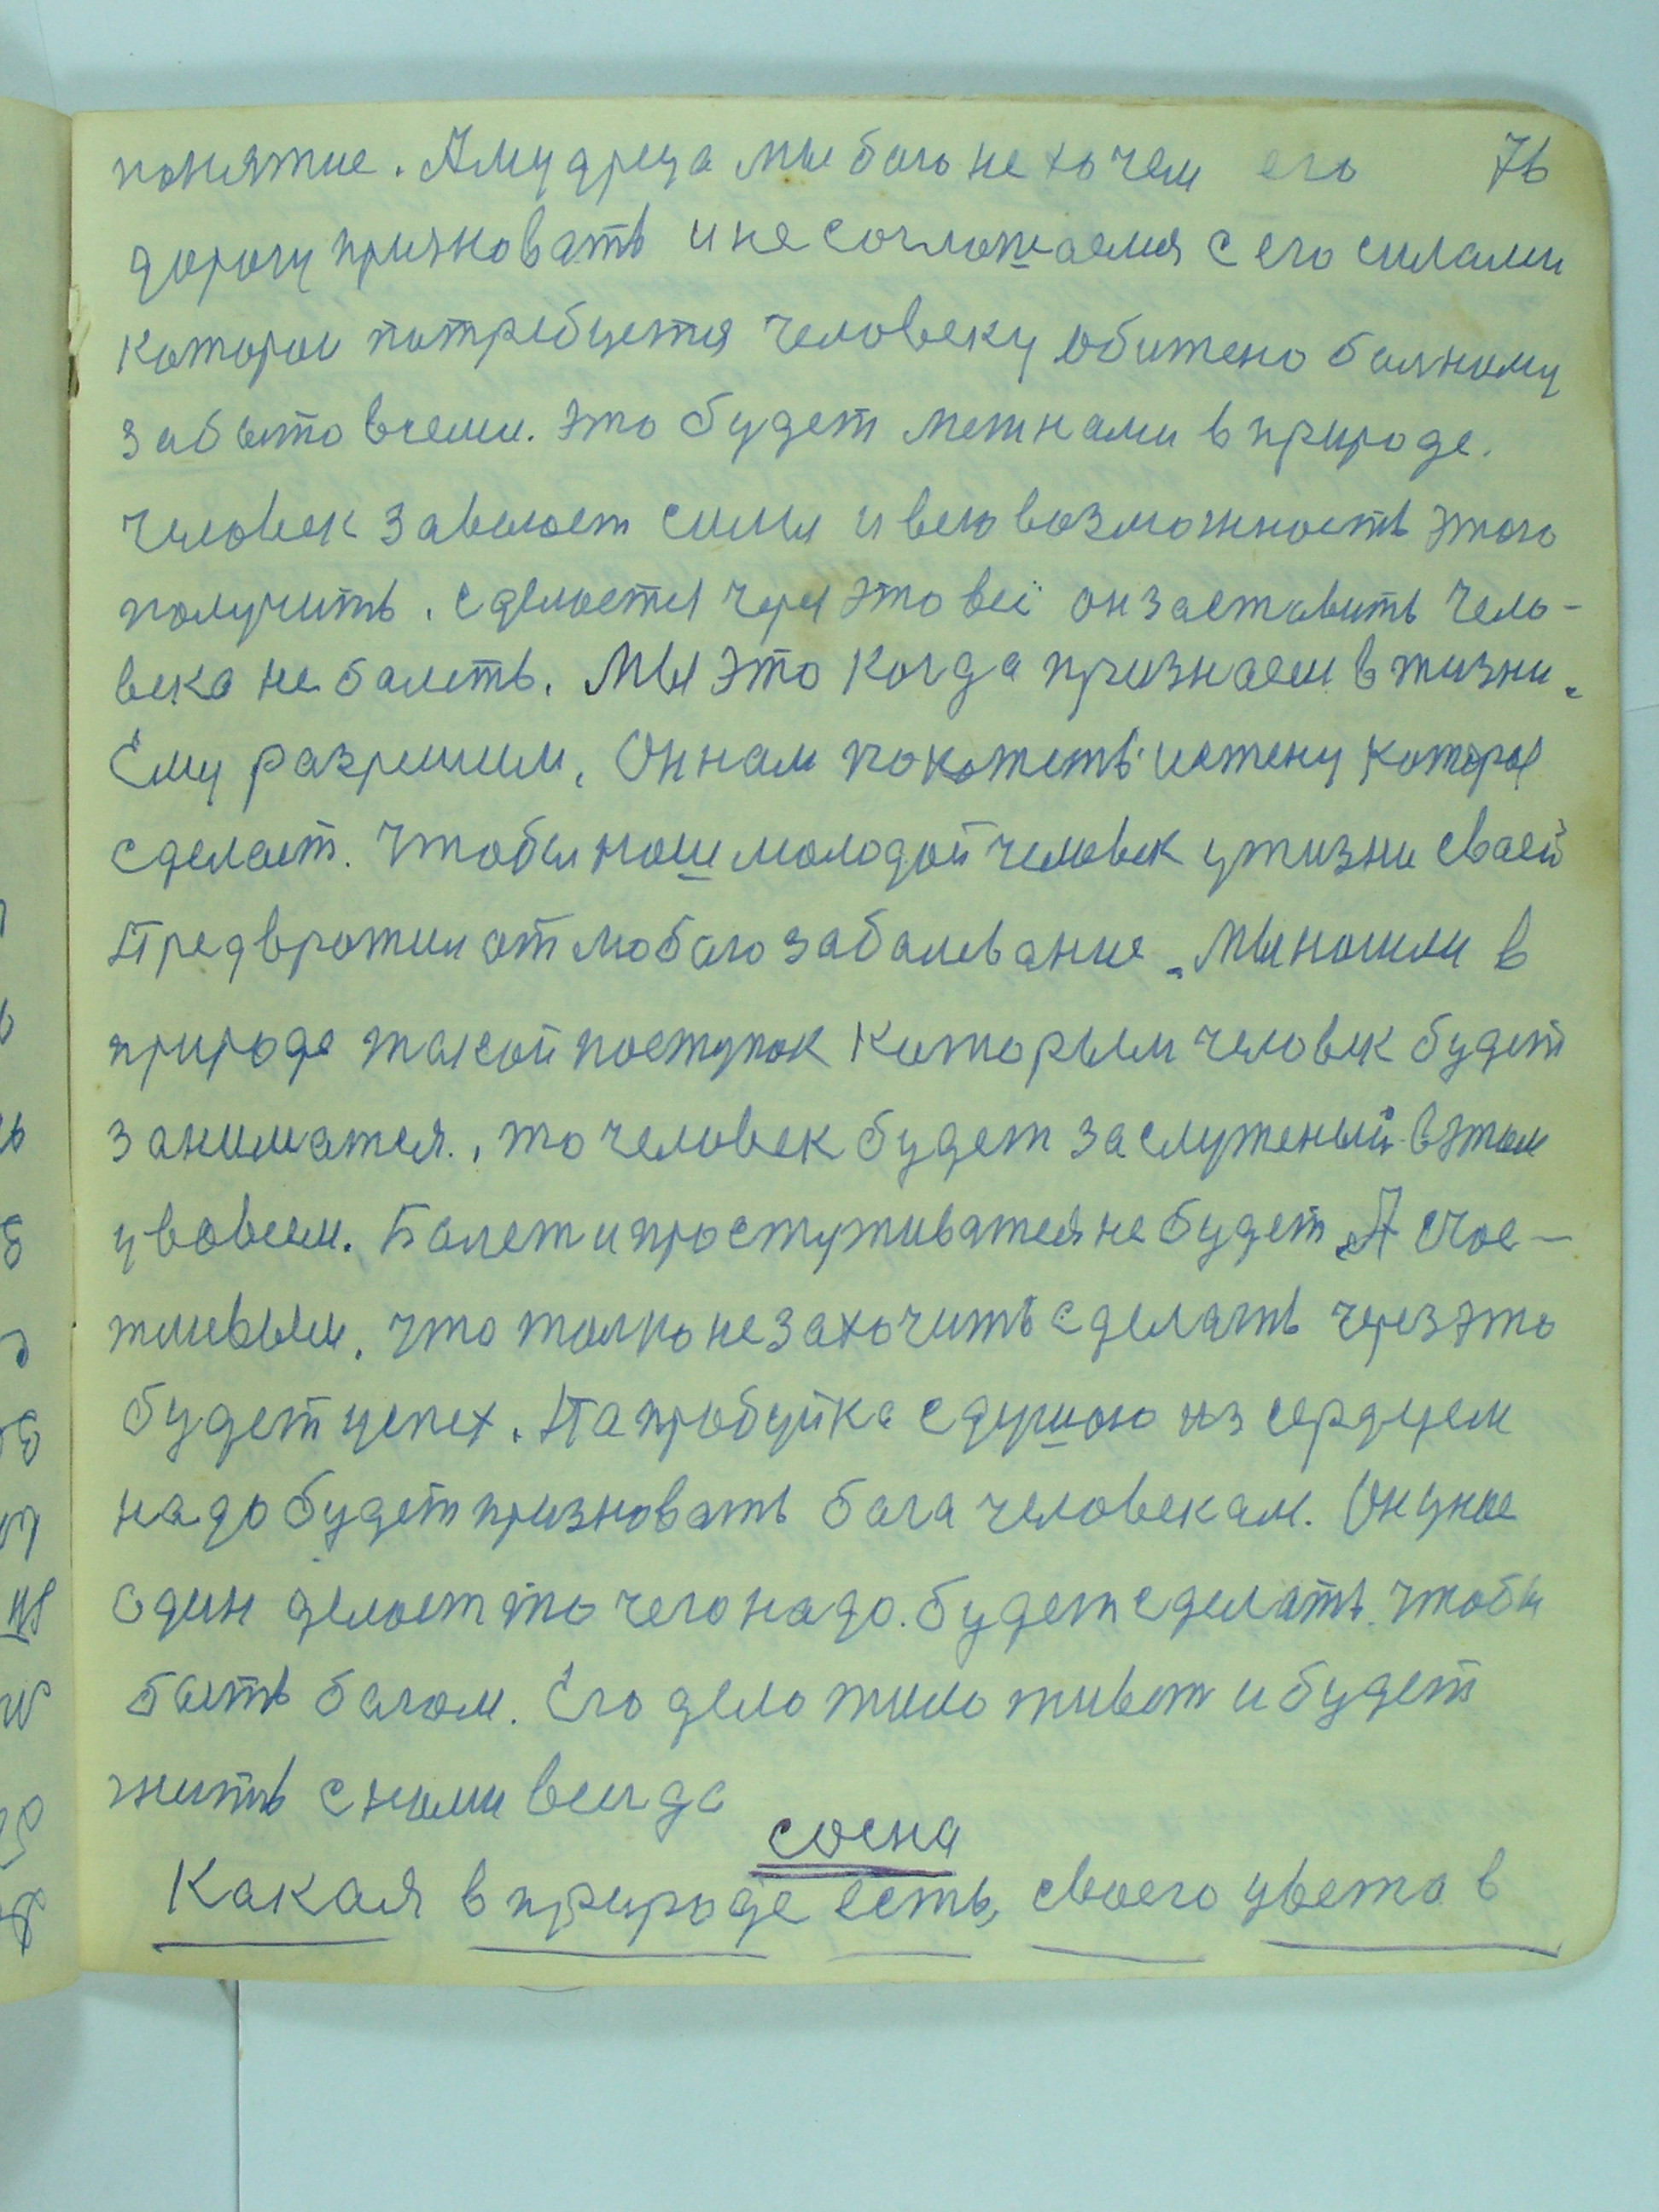 понятие. А мудреца мы бого не хочем его 76
дорогу призновать и не соглошаемся с его силами
которои потребуется человеку обитено болному
забыто всеми. Это будет межнами в природе.
Человек завоюет силы и всю возможность этого
получить. Сделается через это всё он заставить чело-
века не болеть. Мы это когда признаем в жизни.
Ему разрешим. Он нам покажеть истену которая
сделает. Чтобы наш молодой человек у жизни своей
Предвротил от любого заболевание. Мы нашли в
природе такой поступок которым человек будет
заниматся., то человек будет заслуженый в этом
у вовсем. Болет и простуживатся не будет. А счас-
тливым. Что толко не захочить сделать через это
будет успех. Попробуйка с душою из сердцем
надо будет призновать бога человекам. Он у нас
один делает то чего надо. будет сделать. Чтобы
быть богом. Его дело жило живет и будет
жить с нами всегда
сосна
Какая в природе есть, своего цвета в